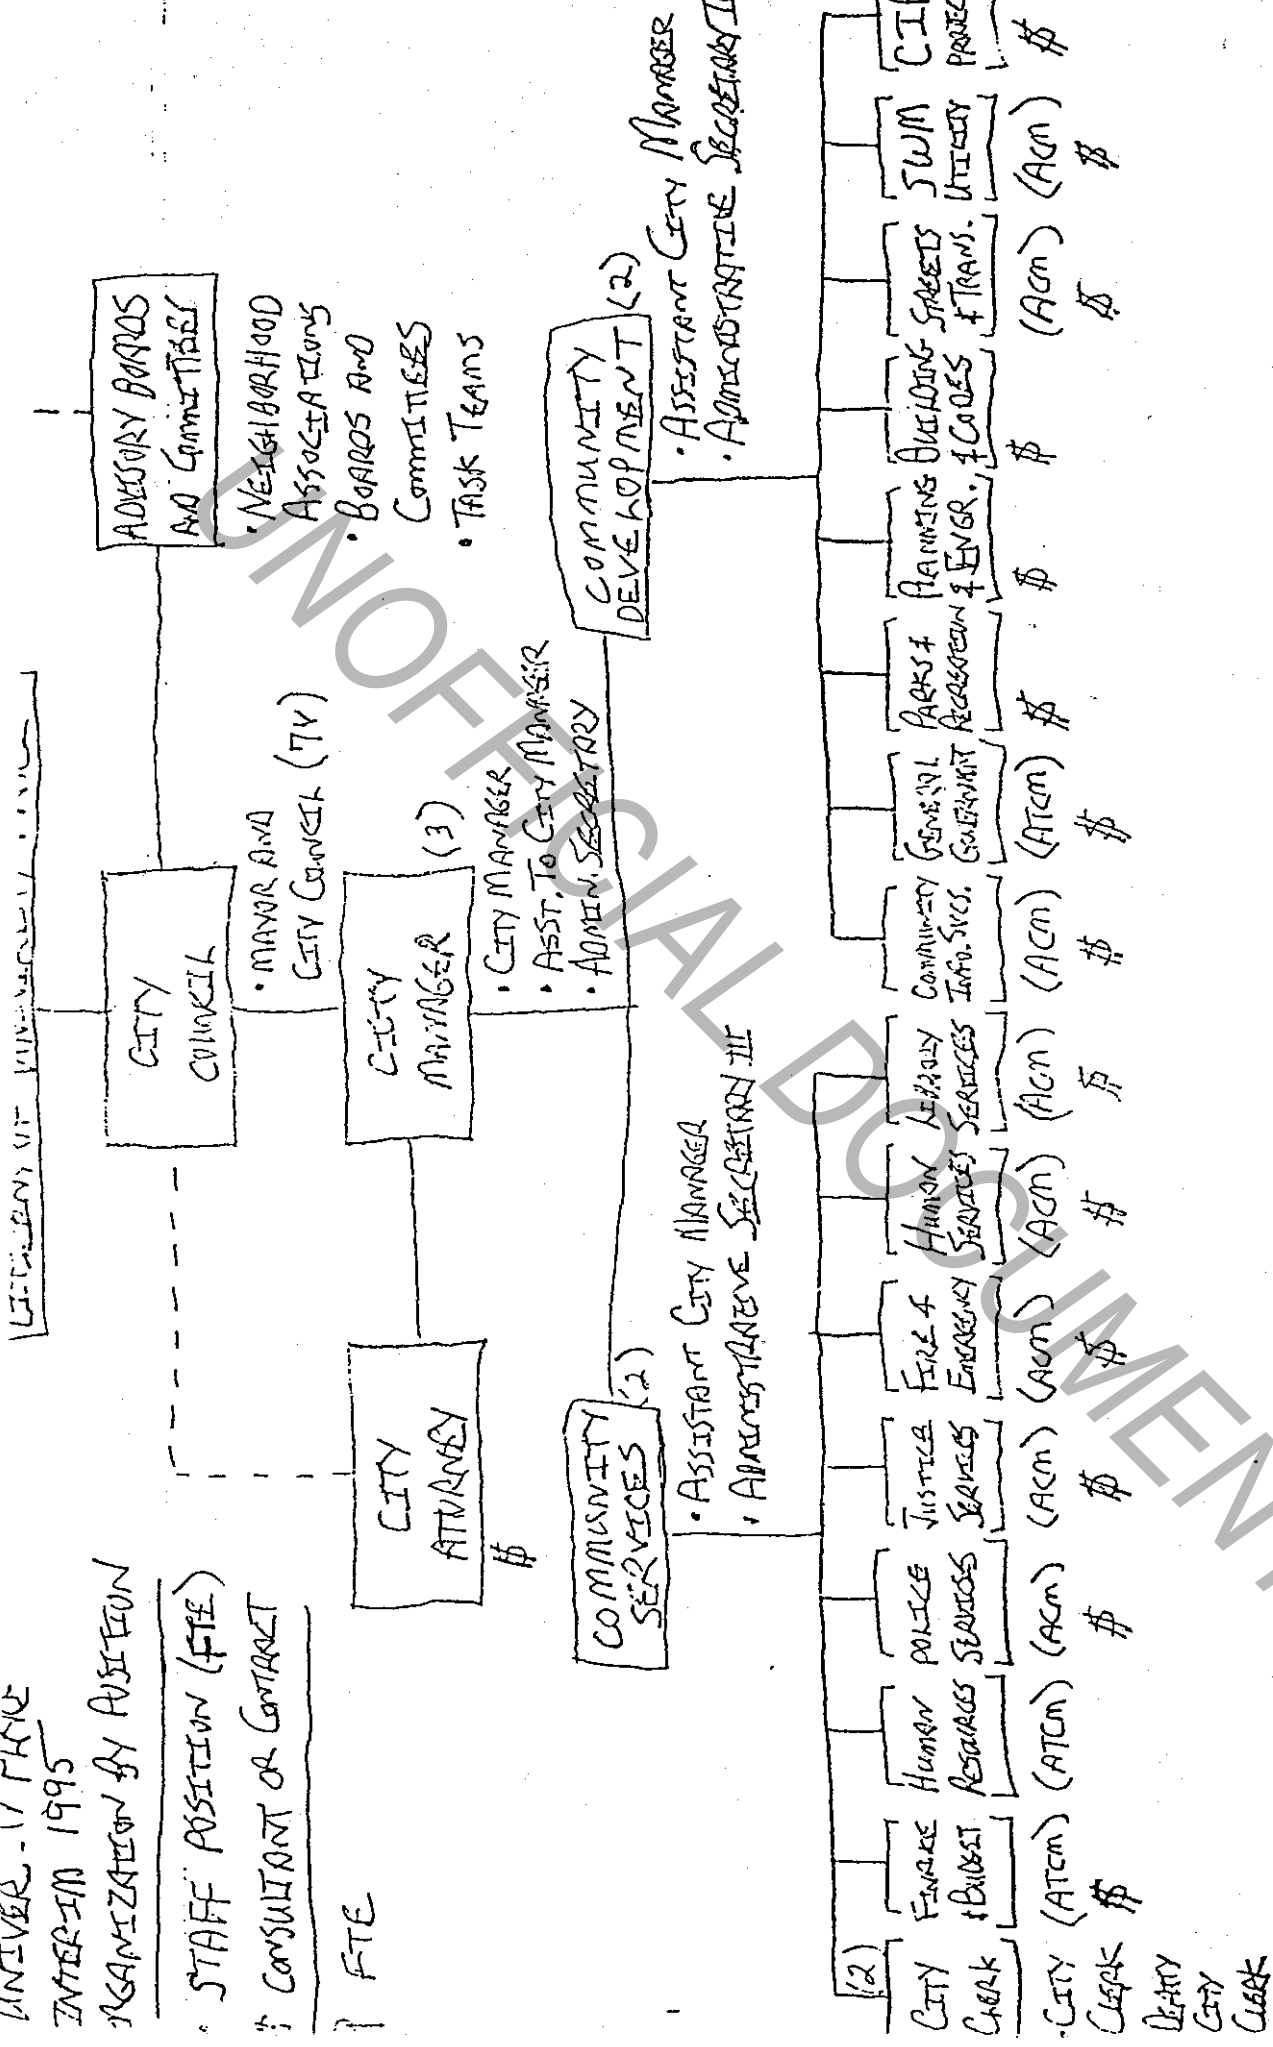 INTERIM 1995
ORGANIZATION BY POSITION
· STAFF POSITION (FTE)
$ CONSULTANT OR CONTRACT
FTE
CITY
COUNCIL
· MAYOR AND
CITY COUNCIL (7V)
ADVISORY BOARDS
AND COMMITTEES
· NEIGHBORHOOD
ASSOCIATIONS
· BOARDS AND
COMMITTEES
· TASK TEAMS
CITY
ATTORNEY
$
CITY
MANAGER
(3)
· CITY MANAGER
· ASST. TO CITY MANAGER
· ADMIN. SECRETARY
COMMUNITY
SERVICES
(2)
· ASSISTANT CITY MANAGER
· ADMINISTRATIVE SECRETARY III
COMMUNITY
DEVELOPMENT
(2)
· ASSISTANT CITY MANAGER
· ADMINISTRATIVE SECRETARY
(2)
CITY
CLERK
· CITY
CLERK
DEPUTY
CITY
CLERK
FINANCE
& BUDGET
(ATCM)
$
HUMAN
RESOURCES
(ATCM)
POLICE
SERVICES
(ACM)
$
JUSTICE
SERVICES
(ACM)
$
FIRE &
EMERGENCY
(ACM)
$
HUMAN
SERVICES
(ACM)
$
LIBRARY
SERVICES
(ACM)
$
COMMUNITY
INFO. SVCS.
(ACM)
$
GENERAL
GOVERNMENT
(ATCM)
$
PARKS &
RECREATION
$
PLANNING
& ENGR.
$
BUILDING
& CODES
$
STREETS
& TRANS.
(ACM)
$
SWM
UTILITY
(ACM)
$
CIP
PROJEC
$
UNOFFICIAL DOCUMENT